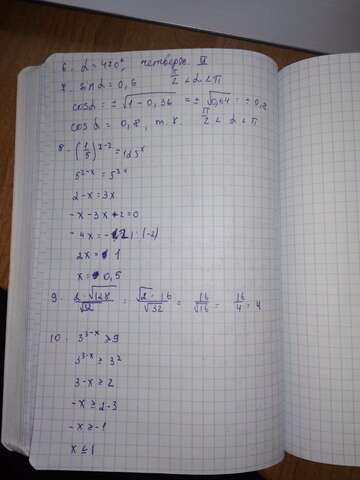 6. α = 420°, четверть II
7. sin α = 0,6  π/2 < α < π
cos α = ±√(1 - 0,36) = ±√0,64 = ± 0,8
cos α = 0,8, т.к π/2 < α < π
8. (1/5)^(x-2) = 125^x
5^(2-x) = 5^(3x)
2 - x = 3x
-x - 3x + 2 = 0
-4x = -2 | : (-2)
2x = 1
x = 0,5
9. = √2 · 16/√32 = 16/√16 = 16/4 = 4
10. 3^(3-x) ≥ 9
3^(3-x) ≥ 3^2
3 - x ≥ 2
-x ≥ 2 - 3
-x ≥ -1
x ≤ 1